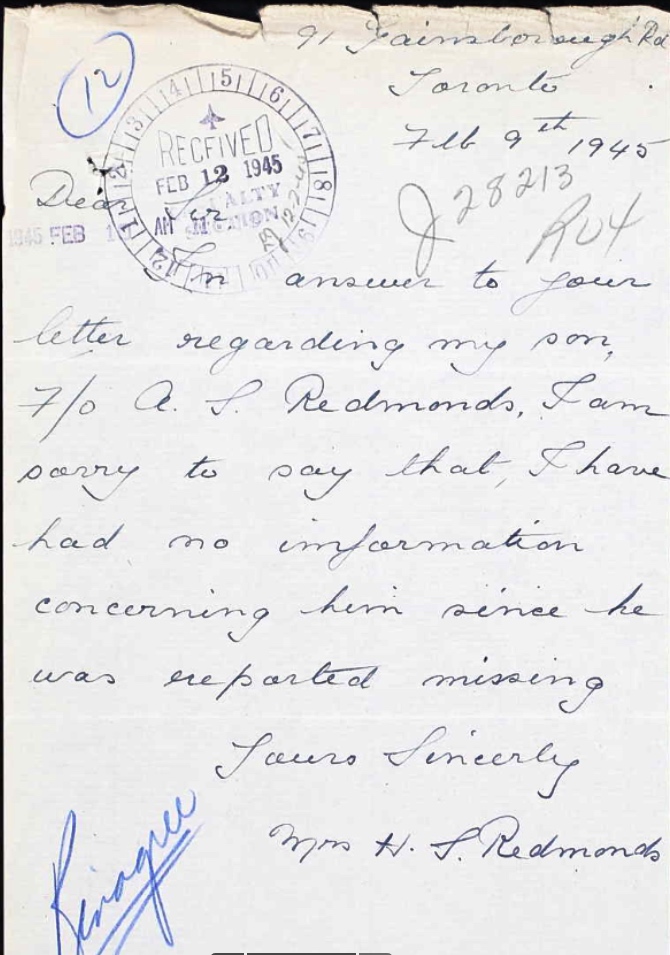 91 Gainsborough Rd
Toronto
Feb 9th 1945
12
15 16 17 18
14 13
RECEIVED
FEB 12 1945
AM
SECTION
1945 FEB
J28213
R04
Dear Sir
In answer to your
letter regarding my son,
F/O A. S. Redmonds, I am
sorry to say that, I have
had no information
concerning him since he
was reported missing
Yours Sincerly
Mrs H. S. Redmonds